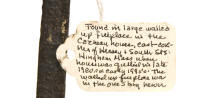 Found in large walled
up fireplace in the
Cazneau house, east cor-
ner of Hersey & South Sts.
Hingham Mass when
house was gutted in late
1980s or early 1990's. The
walled up fireplace was
in the one story newer